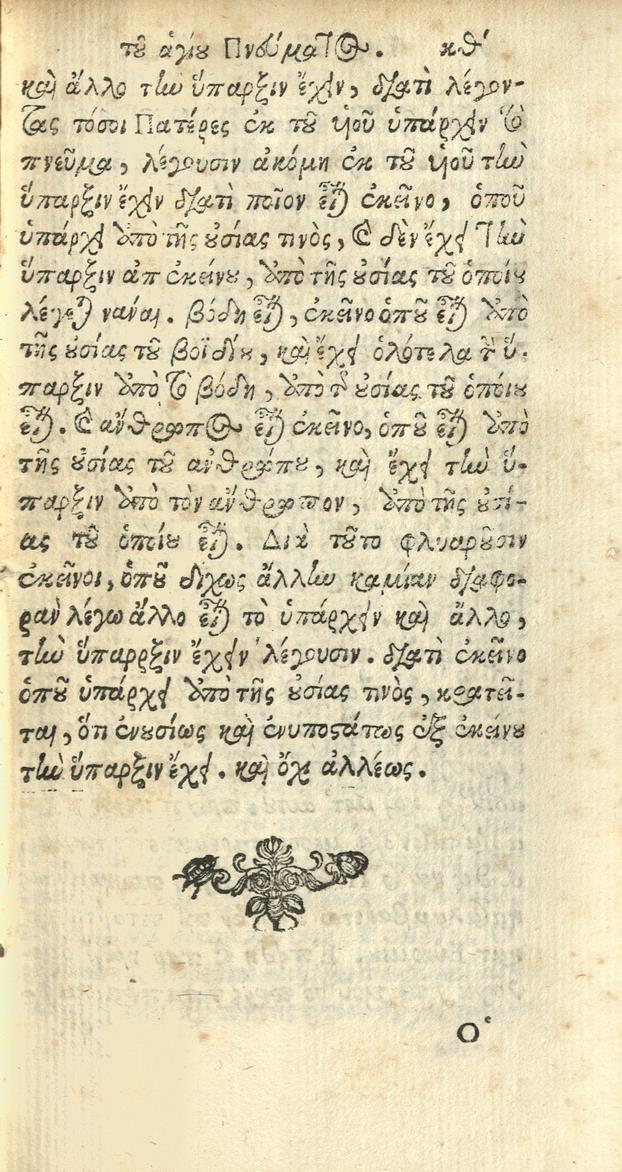 τοῦ ἁγίου Πνεύματος. κθʹ
καὶ ἄλλο τὴν ὕπαρξιν ἔχειν, διατὶ λέγον-
τας τόσοι Πατέρες ἐκ τοῦ υἱοῦ ὑπάρχειν τὸ
πνεῦμα, λέγουσιν ἀκόμη ἐκ τοῦ υἱοῦ τὴν
ὕπαρξιν ἔχειν διατὶ ποῖον εἶναι ἐκεῖνο, ὁποῦ
ὑπάρχει ἀπὸ τῆς οὐσίας τινὸς, καὶ δὲν ἔχει τὴν
ὕπαρξιν ἀπ ἐκείνου, ἀπὸ τῆς οὐσίας τοῦ ὁποίου
λέγεται νάναι. βόδη εἶναι, ἐκεῖνο ὁποῦ εἶναι ἀπὸ
τῆς οὐσίας τοῦ βοϊδίου, καὶ ἔχει ὁλότελα τὴν ὕ-
παρξιν ἀπὸ τὸ βόδη, ἀπὸ τῆς οὐσίας τοῦ ὁποίου
εἶναι. καὶ ἄνθρωπος εἶναι ἐκεῖνο, ὁποῦ εἶναι ἀπὸ
τῆς οὐσίας τοῦ ἀνθρώπου, καὶ ἔχει τὴν ὕ-
παρξιν ἀπὸ τὸν ἄνθρωπον, ἀπὸ τῆς οὐσί-
ας τοῦ ὁποίου εἶναι. Διὰ τοῦτο φλυαροῦσιν
ἐκεῖνοι, ὁποῦ δίχως ἄλλην καμίαν διαφο-
ρὰν λέγω ἄλλο εἶναι τὸ ὑπάρχειν καὶ ἄλλο,
τὴν ὕπαρξιν ἔχειν λέγουσιν. διατὶ ἐκεῖνο
ὁποῦ ὑπάρχει ἀπὸ τῆς οὐσίας τινὸς, κρατεῖ-
ται, ὅτι ἐνουσίως καὶ ἐνυποστάτως ἐξ ἐκείνου
τὴν ὕπαρξιν ἔχει. καὶ ὄχι ἀλλέως.
Ὁ